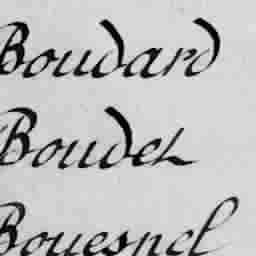 Boudard
Boudet
Bouesnel